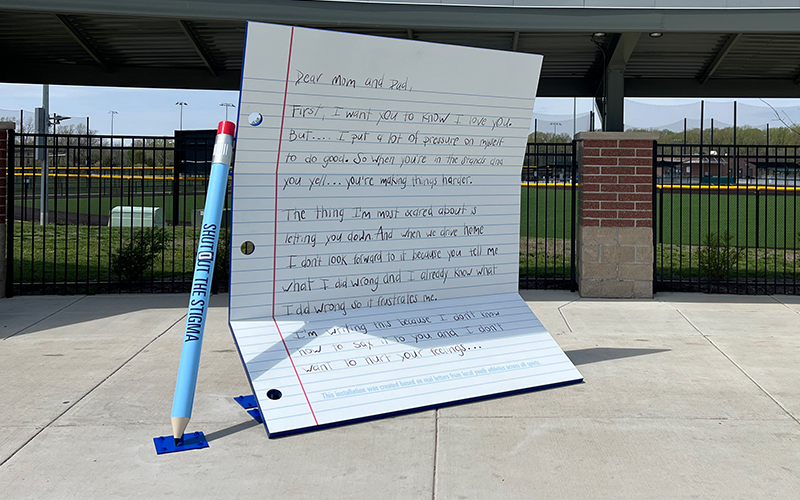 Dear Mom and Dad,
First, I want you to know I love you.
But.... I put a lot of pressure on myself
to do good. So when you're in the stands and
you yell... you're making things harder.
The thing I'm most scared about is
letting you down. And when we drive home
I don't look forward to it because you tell me
what I did wrong and I already know what
I did wrong so it frustrates me.
I'm writing this because I don't know
how to say it to you and I don't
want to hurt your feelings...
This installation was created based on real letters from local youth athletes across all sports.
SHUT OUT THE STIGMA